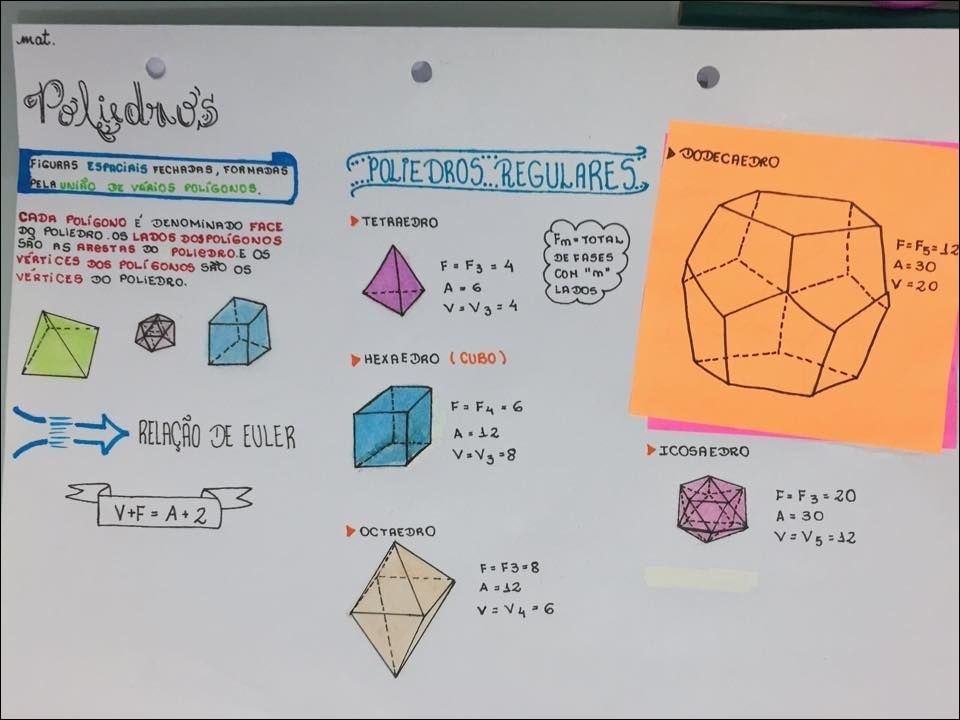 mat.
Poliedro's
FIGURAS ESPACIAIS FECHADAS, FORMADAS
PELA UNIÃO DE VÁRIOS POLÍGONOS.
CADA POLÍGONO É DENOMINADO FACE
DO POLIEDRO. OS LADOS DOS POLÍGONOS
SÃO AS ARESTAS DO POLIEDRO. E OS
VÉRTICES DOS POLÍGONOS SÃO OS
VÉRTICES DO POLIEDRO.
RELAÇÃO DE EULER
V+F = A+2
POLIEDROS REGULARES
TETRAEDRO
F = F3 = 4
A = 6
V = V3 = 4
Fm = TOTAL
DE FASES
COM "m"
LADOS
HEXAEDRO (CUBO)
F = F4 = 6
A = 12
V = V3 = 8
OCTAEDRO
F = F3 = 8
A = 12
V = V4 = 6
DODECAEDRO
F = F5 = 12
A = 30
V = 20
ICOSAEDRO
F = F3 = 20
A = 30
V = V5 = 12